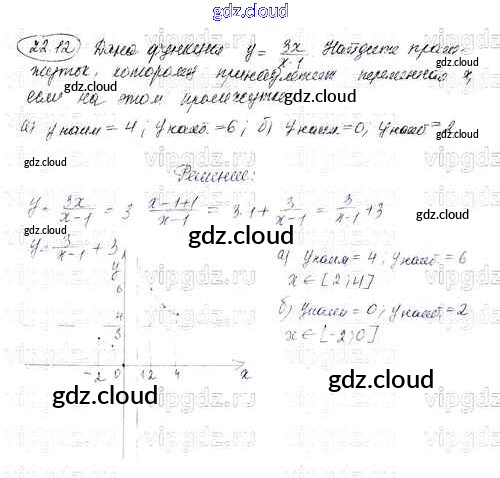 gdz.cloud
22.12 Дана функция y = 3x/x-1 Найдите проме-
жуток, которому принадлежит переменная x,
если на этом промежутке
gdz.cloud
а) yнаим = 4; yнаиб. = 6; б) yнаим = 0; yнаиб = 2
gdz.cloud
Решение:
y = 3x/x-1 = 3 x-1+1/x-1 = 3·1 + 3/x-1 = 3/x-1 + 3
gdz.cloud
y = 3/x-1 + 3
gdz.cloud
а) yнаим = 4; yнаиб. = 6
x ∈ [2; 4]
б) yнаим = 0; yнаиб. = 2
x ∈ [-2; 0]
y
6
4
3
-2 0 1 2 4 x
gdz.cloud
gdz.cloud
gdz.cloud